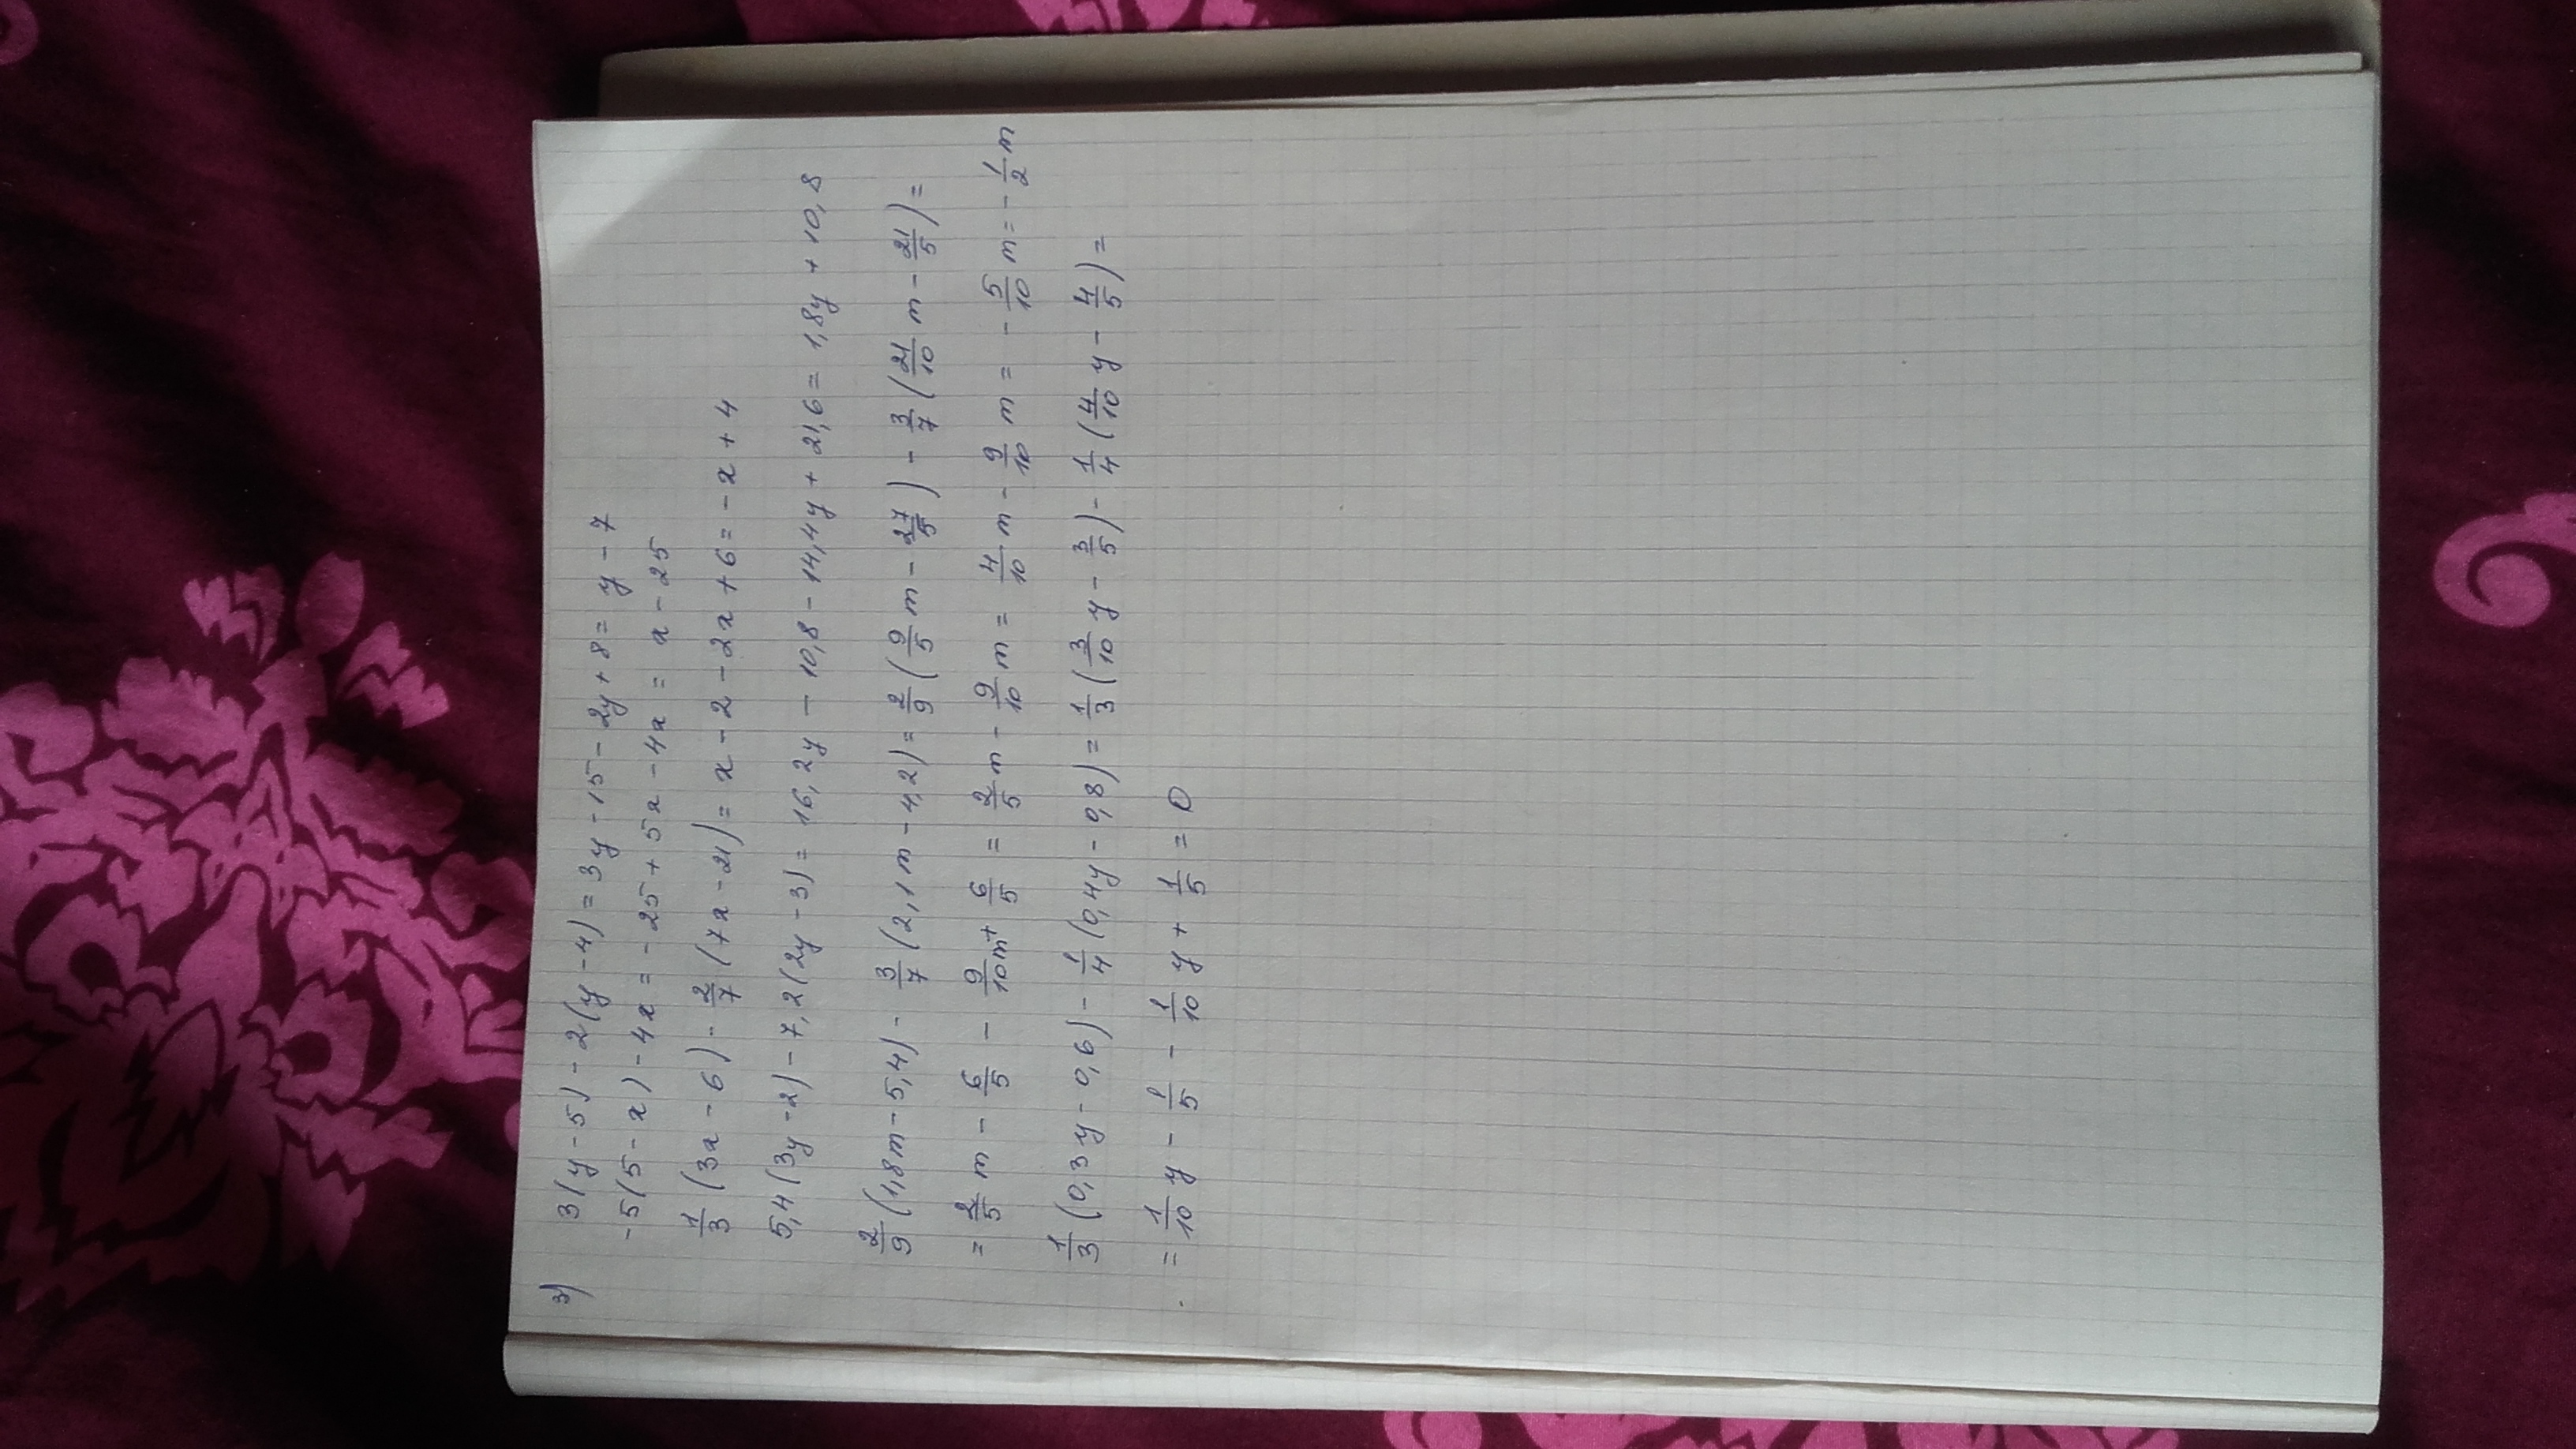 3)
3(y-5)-2(y-4)=3y-15-2y+8=y-7
-5(5-x)-4x=-25+5x-4x=x-25
1/3(3x-6)-2/7(7x-21)=x-2-2x+6=-x+4
5,4(3y-2)-7,2(2y-3)=16,2y-10,8-14,4y+21,6=1,8y+10,8
2/9(1,8m-5,4)-3/7(2,1m-4,2)=2/9(9/5m-27/5)-3/7(21/10m-21/5)=
=2/5m-6/5-9/10m+6/5=2/5m-9/10m=4/10m-9/10m=-5/10m=-1/2m
1/3(0,3y-0,6)-1/4(0,4y-0,8)=1/3(3/10y-3/5)-1/4(4/10y-4/5)=
=1/10y-1/5-1/10y+1/5=0